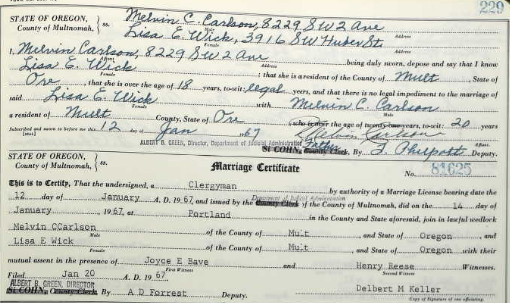 229
STATE OF OREGON, County of Multnomah, } ss.
Melvin C. Carlson, 8229 SW 2 Ave
Male Address
Lisa E. Wick, 3916 SW Huber St.
Female Address
I, Melvin Carlson, 8229 SW 2 Ave being duly sworn, depose and say that I know
Lisa E. Wick : that she is a resident of the County of Mult State of
Ore, that she is over the age of 18 years, legal and that there is no legal impediment to the marriage of
said Lisa E. Wick with Melvin C. Carlson
Female Male
a resident of Mult County, State of Ore who is over the age of twenty-one years, to-wit: 20 years
Subscribed and sworn to before me this 12 day of Jan 67 Melvin Carlson Affiant.
ALBERT B. GREEN, Director, Department of Judicial Administration Father
SI COHN, County Clerk. By J. Philpott Deputy.
STATE OF OREGON, County of Multnomah, } ss. Marriage Certificate No. 81625
This is to Certify, That the undersigned, a Clergyman by authority of a Marriage License bearing date the
12 day of January A. D. 1967 and issued by the County Clerk of the County of Multnomah, did on the 14 day of
Department of Judicial Administration
January, 1967, at Portland in the County and State aforesaid, join in lawful wedlock
Melvin CCarlson of the County of Mult and State of Oregon and
Male
Lisa E Wick of the County of Mult and State of Oregon with their
Female
mutual assent in the presence of Joyce E Bave and Henry Reese Witnesses.
First Witness Second Witness
Filed Jan 20 A. D. 1967
ALBERT B. GREEN, DIRECTOR
SI COHN, County Clerk. By A D Forrest Deputy Delbert M Keller
Copy of Signature of one officiating.